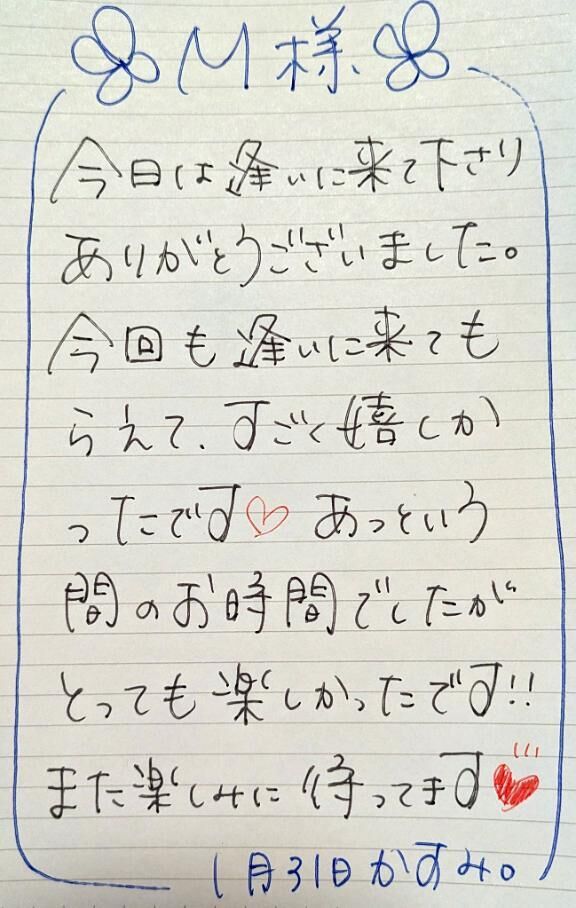 M様
今日は逢いに来て下さり
ありがとうございました。
今回も逢いに来ても
らえて、すごく嬉しか
ったです♡ あっという
間のお時間でしたが
とっても楽しかったです!!
また楽しみに待ってます♥
1月31日かすみ。